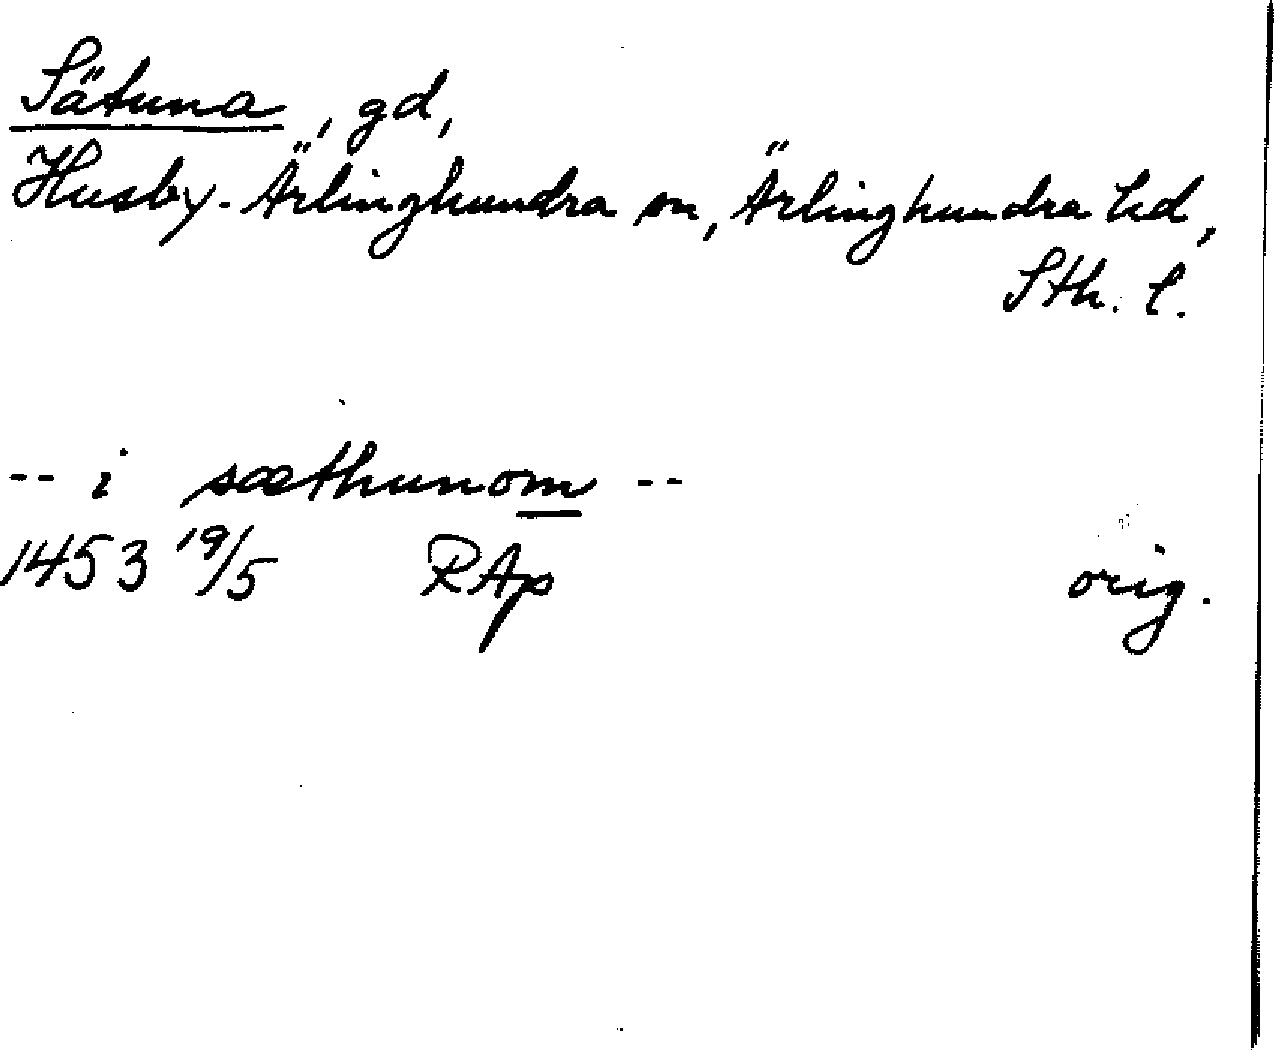 Sätuna, gd,
Husby-Ärlinghundra sn, Ärlinghundra hd,
Sth. l.
-- i sæthunom --
1453 19/5 RAp orig.